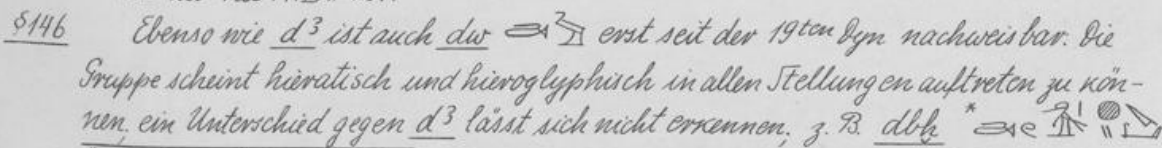 §146 Ebenso wie d3 ist auch dw erst seit der 19ten Dyn nachweisbar. Die
Gruppe scheint hieratisch und hieroglyphisch in allen Stellungen auftreten zu kön-
nen, ein Unterschied gegen d3 lässt sich nicht erkennen; z. B. dbḥ *